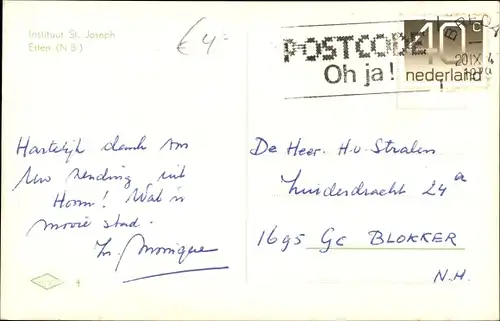 Instituut St. Joseph
Etten (N.B.)
€ 4=
POSTCODE
Oh ja!
BREDA
20 IX 4
1979
40c
nederland
Hartelijk dank om
Uw zending uit
Hoorn! Wat 'n
mooie stad.
Zr. Monique
De Heer. H.v. Stralen
Zuiderdracht 24a
1695 GC BLOKKER
N.H.
4